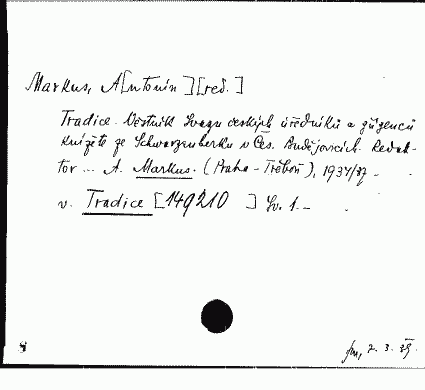 Markus, A[ntonín] [red.]
Tradice. Věstník Svazu českých úředníků a zřízenců
knížete ze Schwarzenberku v Čes. Budějovicích. Redak-
tor ... A. Markus. (Praha - Třeboň), 1934/37 -
v. Tradice [149210 ] Sv. 1. -
7. 3. 39.